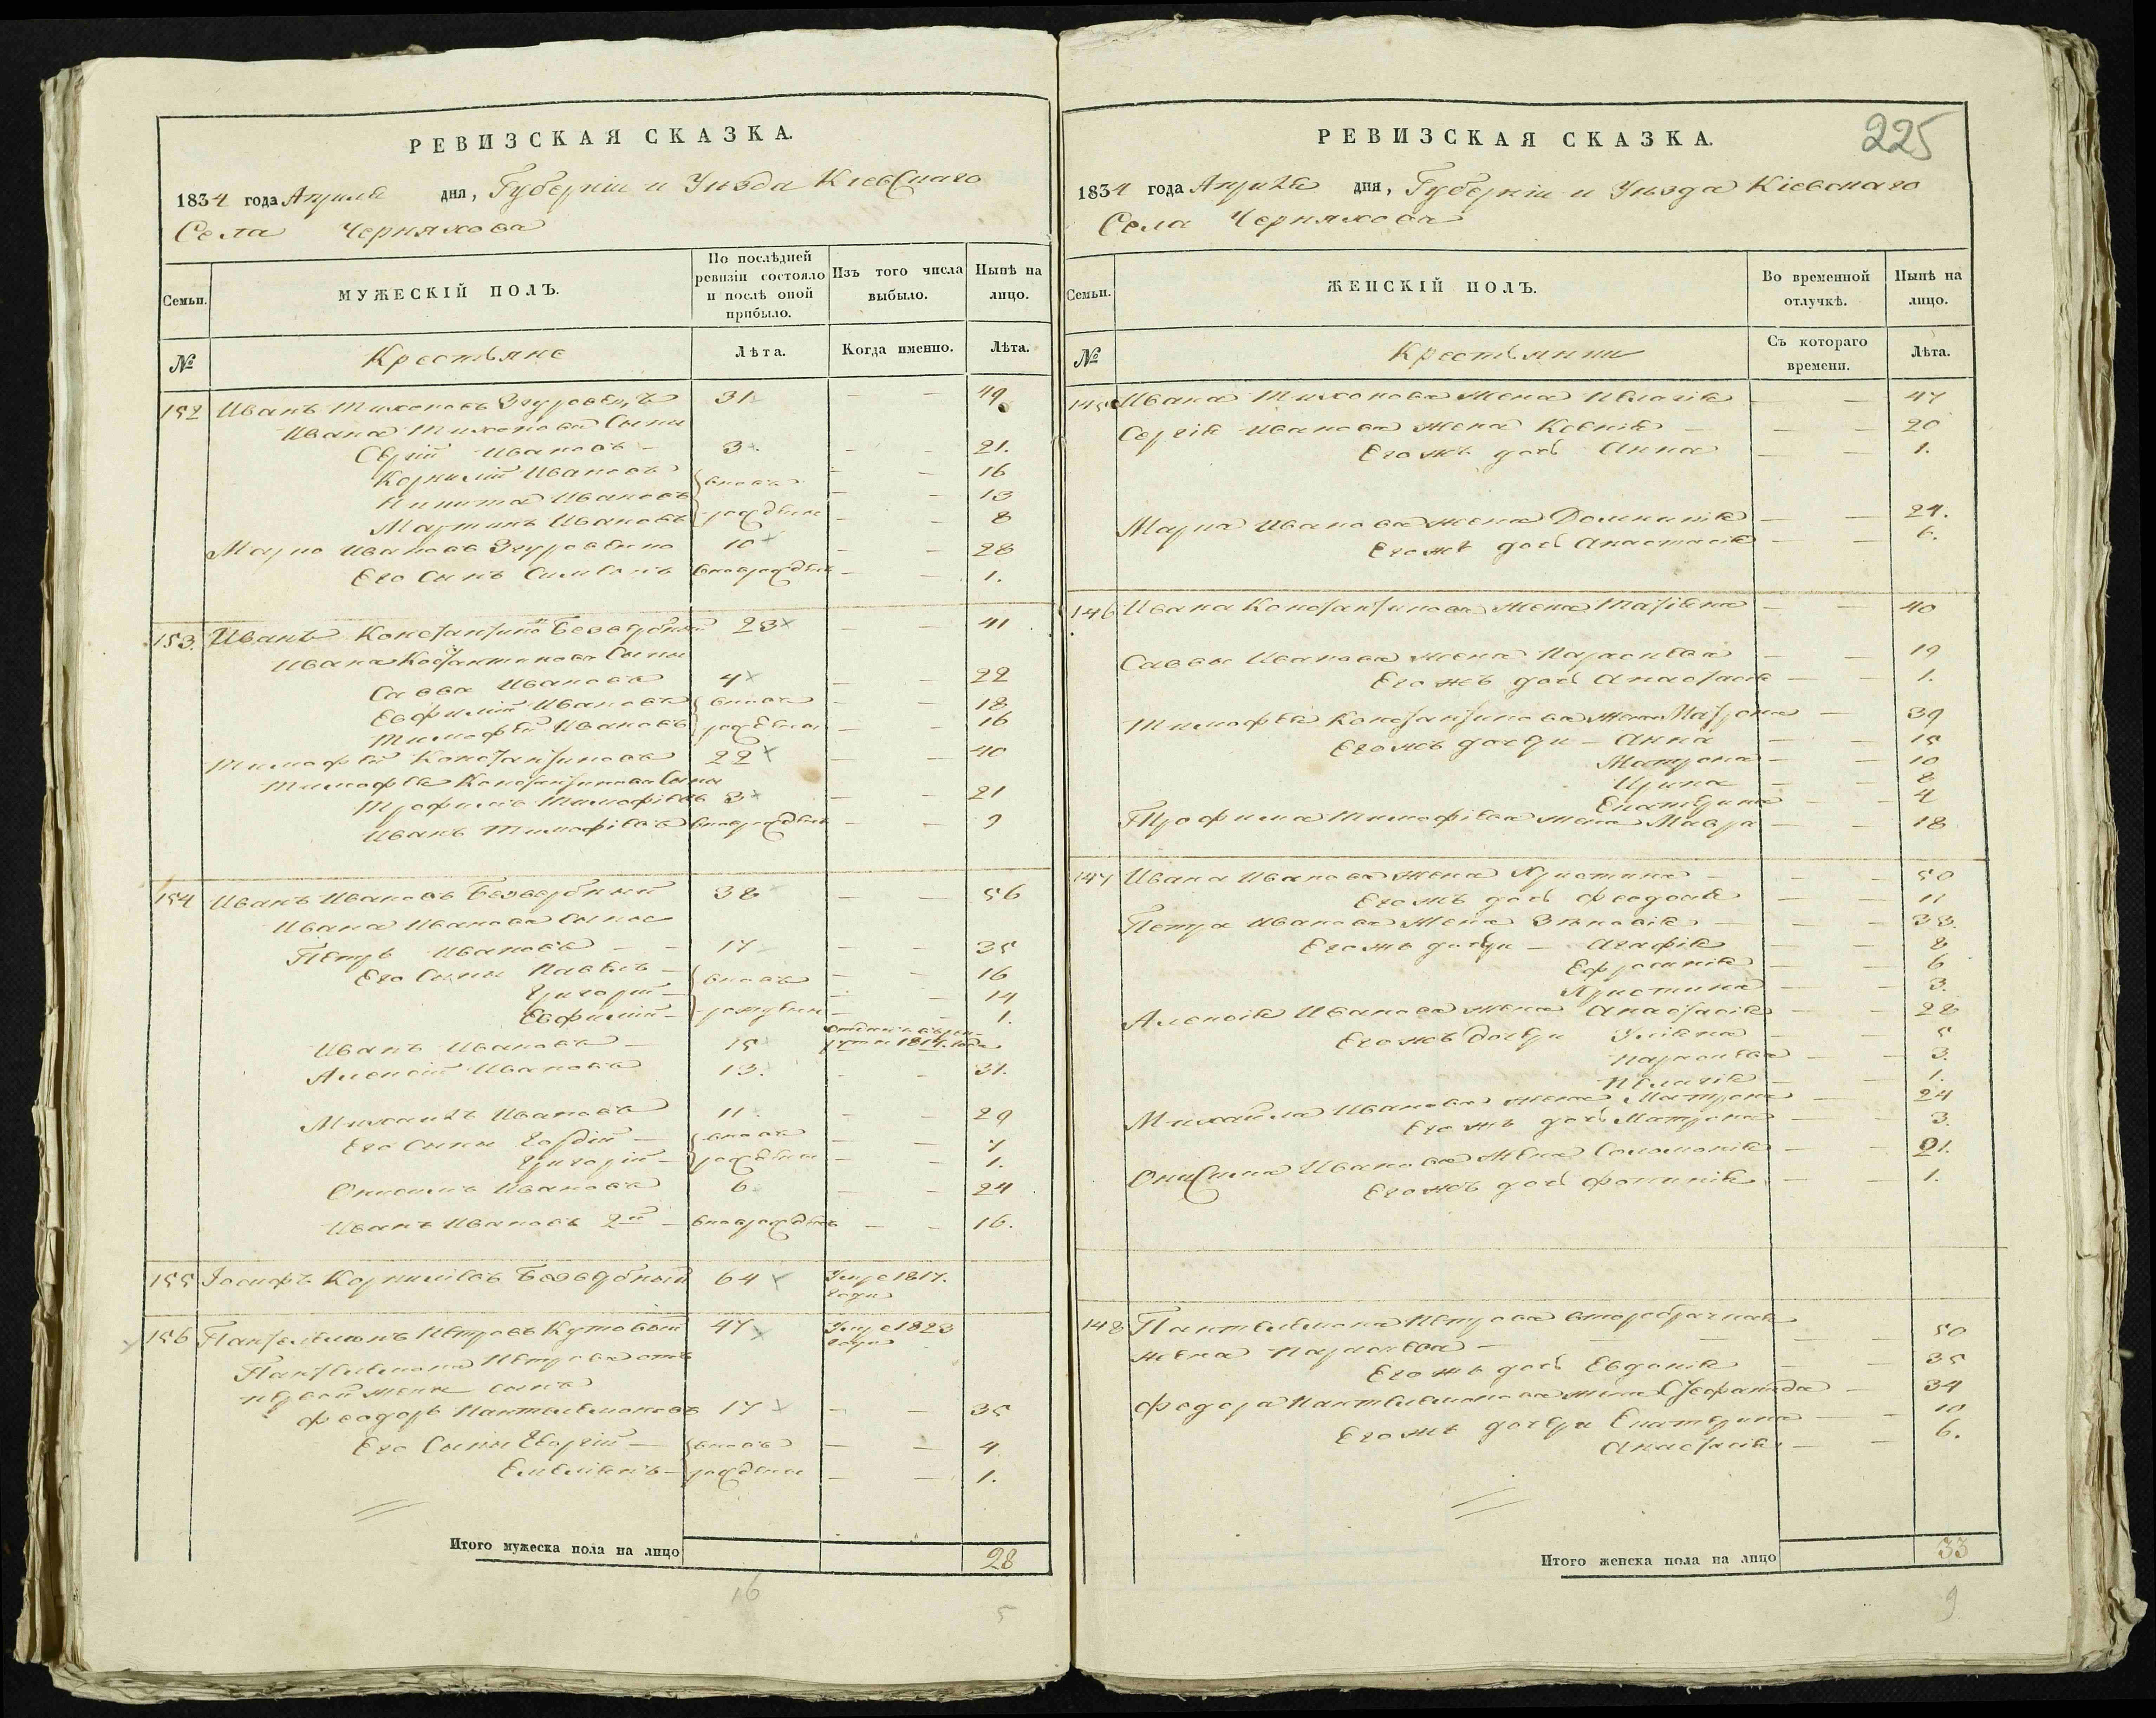 РЕВИЗСКАЯ СКАЗКА.
1834 года Апреля дня, Губернiи и Уѣзда Кіевскаго
Села Черняхова
Семьи. МУЖЕСКІЙ ПОЛЪ. По послѣдней ревизіи состояло и послѣ оной прибыло. Изъ того числа выбыло. Нынѣ на лицо.
№ Крестьяне Лѣта. Когда именно. Лѣта.
152 Иванъ Тихоновъ 31 — — 49
Ивана Тихонова Сыны
Сергій Ивановъ — 3 — — 21.
Корнилій Ивановъ вновь — — 16
Никита Ивановъ — — 13
Мартинъ Ивановъ рожденн — — 8
Марко Ивановъ 10 — — 28
Его Сынъ Симеонъ вноврожденъ — — 1.
153. Иванъ Константиновъ Безведѣрный 23 — — 41
Ивана Костантинова Сыны
Савва Ивановъ 4 — — 22
Евфимій Ивановъ вновь — — 18
Тимофей Ивановъ рожденн — — 16
Тимофей Константиновъ 22 — — 40
Тимофея Константинова Сыны
Трофимъ Тимофіевъ 3 — — 21
Иванъ Тимофіевъ вноврожденъ — — 9
154 Иванъ Ивановъ 38 — — 56
Ивана Иванова Сыны
Петръ Ивановъ — — 17 — — 35
Его Сыны Павелъ — вновь — — 16
Григорій — — — 14
Евфимій — рожденн — — 1.
Иванъ Ивановъ — 15
Алексій Ивановъ 13. — — 31.
Михаилъ Ивановъ 11. — — 29
Его Сыны Гордій — вновь — — 7
Григорій — рожденн — — 1.
Онисимъ Ивановъ 6 — — 24
Иванъ Ивановъ 2й — вноврожденъ — — 16.
155 Іосифъ Корниліевъ 64 Умре 1817. года
156 Пантелеимонъ Петровъ Кутовый 47 Умре 1823 года
Пантелеимона Петрова отъ
первой жены сынъ
Феодоръ Пантелеимоновъ 17 — — 35
Его Сыны Георгій — вновь — — 4
Емеліянъ — рожденн — — 1.
Итого мужеска пола на лицо 28
16
5
225
РЕВИЗСКАЯ СКАЗКА.
1834 года Апреля дня, Губернiи и Уѣзда Кіевскаго
Села Черняхова
Семьи. ЖЕНСКІЙ ПОЛЪ. Во временной отлучкѣ. Нынѣ на лицо.
№ Крестьянки Съ котораго времени. Лѣта.
145 Ивана Тихонова жена Пелагія — — 47
Сергія Иванова жена Ксенія — — — 20
Его жъ дочь Анна — — 1.
Марка Иванова жена Домникія — — 24.
Его жъ дочь Анастасія — — 6.
146 Ивана Константинова жена Татіяна — — 40
Саввы Иванова жена Параскева — — 19
Его жъ дочь Анастасія — — 1.
Тимофея Константинова жена Матрона — 39
Его жъ дочери — Анна — — 15
Матрона — — 10
Ирина — — 8
Екатерина — — 4
Трофима Тимофіева жена Мавра — — 18
147 Ивана Иванова жена Христина — — — 50
Его жъ дочь Феодосія — — 11
Петра Иванова жена Зѣновія — — — 33.
Его жъ дочери — Агафія — — 8
Ефросинія — — 6
Христина — — 3.
Алексія Иванова жена Анастасія — — 28
Его жъ дочери Уліяна — — 5
Параскева — — 3.
Пелагія — — 1.
Михаила Иванова жена Матрона — 24
Его жъ дочь Матрона — — 3.
Онисима Иванова жена Соломонія — — 21.
Его жъ дочь — — 1.
148 Пантелеимона Петрова второбрачная
жена Параскева — — — — 50
Его жъ дочь Евдокія — — 35
Федора Пантелеимонова жена Стефанида — 34
Его жъ дочери Екатерина — — 10
Анастасія — — 6.
Итого женска пола на лицо 33
9